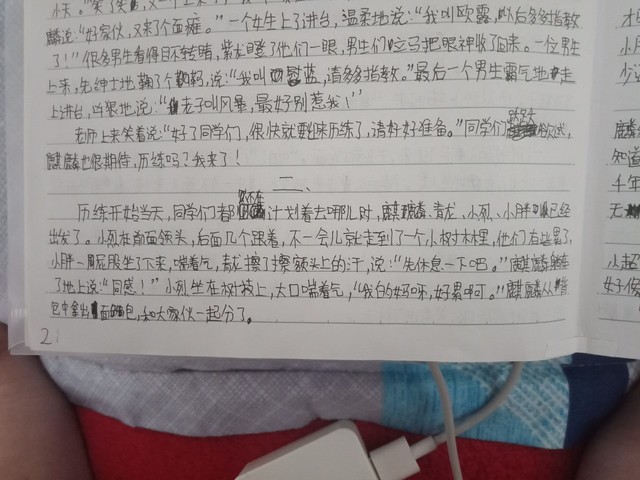 麟说：“好家伙，又来个面瘫。”一个女生上了讲台，温柔地说：“我叫欧露，以后多多指教
了！”很多男生看得目不转睛，紫龙瞪了他们一眼，男生们立马把眼神收了回来。一位男生
上来，先绅士地鞠了个躬，说：“我叫蓝，请多指教。”最后一个男生霸气地走
上讲台，凶狠地说：“老子叫风暴，最好别惹我！”
老师上来笑着说：“好了同学们，很快就要出来历练了，请好好准备。”同学们欢呼，
麒麟也很期待，历练吗？我来了！
二、
历练开始当天，同学们都还在计划着去哪儿时，麒麟、青龙、小烈、小胖已经
出发了。小烈在前面领头，后面几个跟着，不一会儿就走到了一个小树林里，他们有些累了，
小胖一屁股坐了下来，喘着气，青龙擦了擦额头上的汗，说：“先休息一下吧。”麒麟躺
了地上说：“同感！”小烈坐在树枝上，大口喘着气，“我的妈呀，好累啊可。”麒麟从背
包中拿出面包，和大家伙一起分了。
2
才
小月
少
麒麟
知道
千年
无
小超
好像